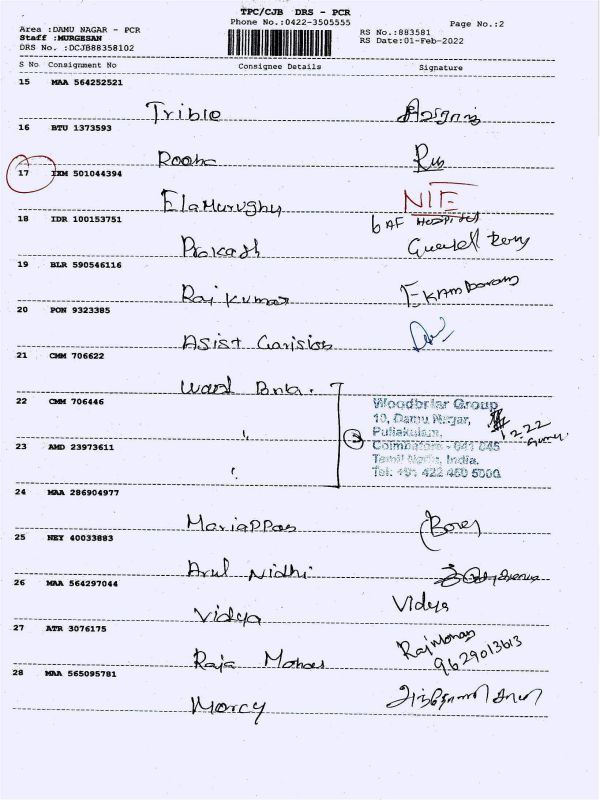 TPC/CJB DRS - PCR
Phone No.:0422-3505555
Page No.:2
Area :DAMU NAGAR - PCR
Staff :MURGESAN
DRS No. :DCJB88358102
RS No.:883581
RS Date:01-Feb-2022
S No Consignment No Consignee Details Signature
15 MAA 564252521
Trible
16 BTU 1373593
17 IXM 501044394
Elamurughu NIE
18 IDR 100153751
6 AF Hospital
Prakash
19 BLR 590546116
Raj Kumar Ekambaram
20 PON 9323385
Asist
21 CMM 706622
22 CMM 706446
Woodbriar Group
10, Damu Nagar,
Puliakulam,
Coimbatore - 641 045
Tamil Nadu, India.
Tel: +91 422 460 5000
23 AMD 23973611
24 MAA 286904977
Mariappan
25 NEY 40033883
Arul Nidhi
26 MAA 564297044
Vidya Vidya
27 ATR 3076175
Raja Mohan Rajmohan
9629013613
28 MAA 565095781
Morcy